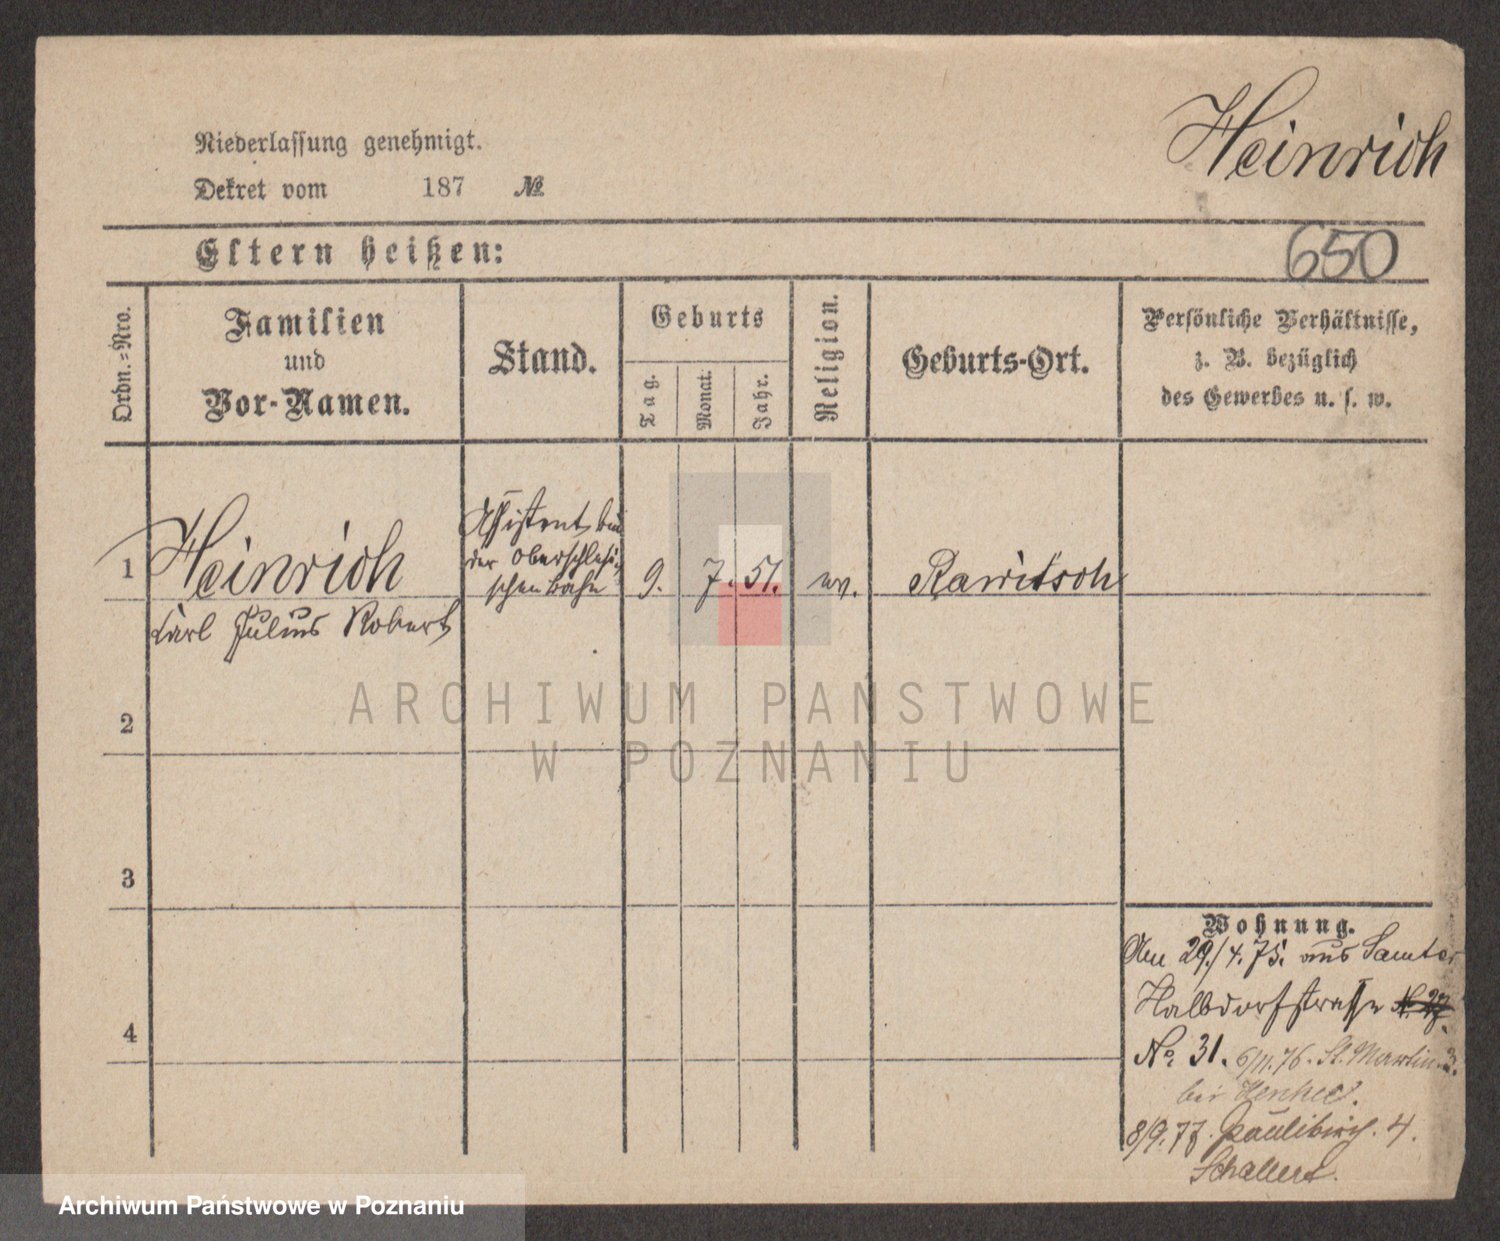 Heinrich
Niederlassung genehmigt.
Dekret vom 187 №
Eltern heißen:
650
Ordn.=Nro.
Familien
und
Vor-Namen.
Stand.
Geburts
Tag.
Monat.
Jahr.
Religion.
Geburts-Ort.
Persönliche Verhältnisse,
z. B. bezüglich
des Gewerbes u. s. w.
1
Heinrich
Carl Julius Robert
Assistent bei
der Oberschlesi-
schen Bahn
9. 7. 51. ev. Rawitsch
2
3
4
Wohnung.
Am 29/4.75. aus Samter
Halbdorfstrasse N. 27
No. 31. 6/11.76. St. Martin
bei
8/9.77. Paulikirch. 4.
Schallert.
ARCHIWUM PAŃSTWOWE
W POZNANIU
Archiwum Państwowe w Poznaniu